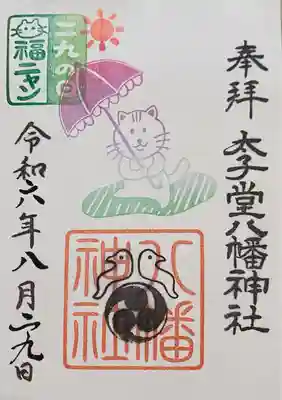 奉拝 太子堂八幡神社
八幡
神社
二九の日
福ニャン
令和六年八月二九日